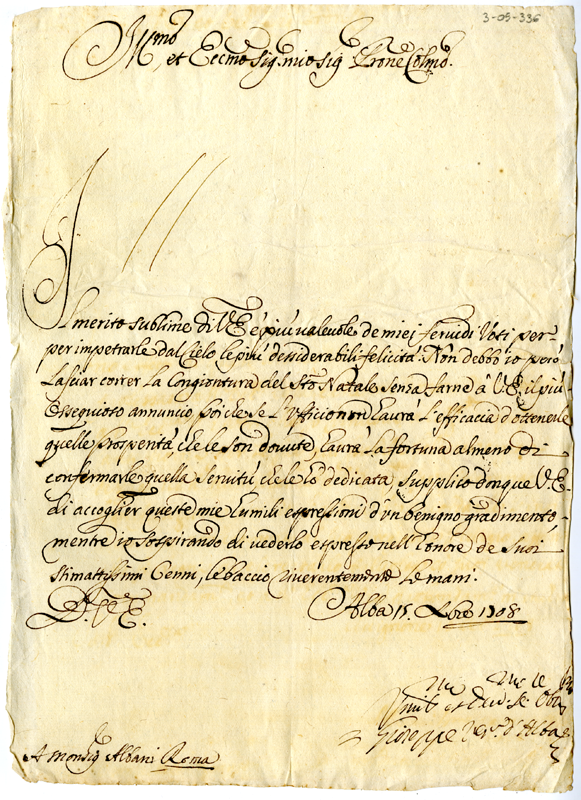 3-05-336
Illmo, et Eccmo Sig. mio Sig. Prone Colmo.
Il merito sublime di V.E. è più valevole de miei fervidi Voti per
per impetrarle dal Cielo le più desiderabili felicità. Non debbo io però
lasciar correr la Congiontura del Sto Natale senza farne à V.E. il più
Ossequioso annuncio poiche se l'Ufficio non haurà l'efficacia d'ottenerle
quelle prosperità che le son douute, haurà la fortuna almeno di
confermarle quella servitù che le hò dedicata, supplico donque V.E.
di accoglier queste mie humili espressioni d'un benigno gradimento,
mentre io sospirando di vederlo espresso nell'honore de suoi
stimattissimi Cenni, le baccio riverentemente le mani.
D. V.E. Alba 15. Xbre 1708
Giuseppe Vesc. d'Alba
A Monsig Albani Roma